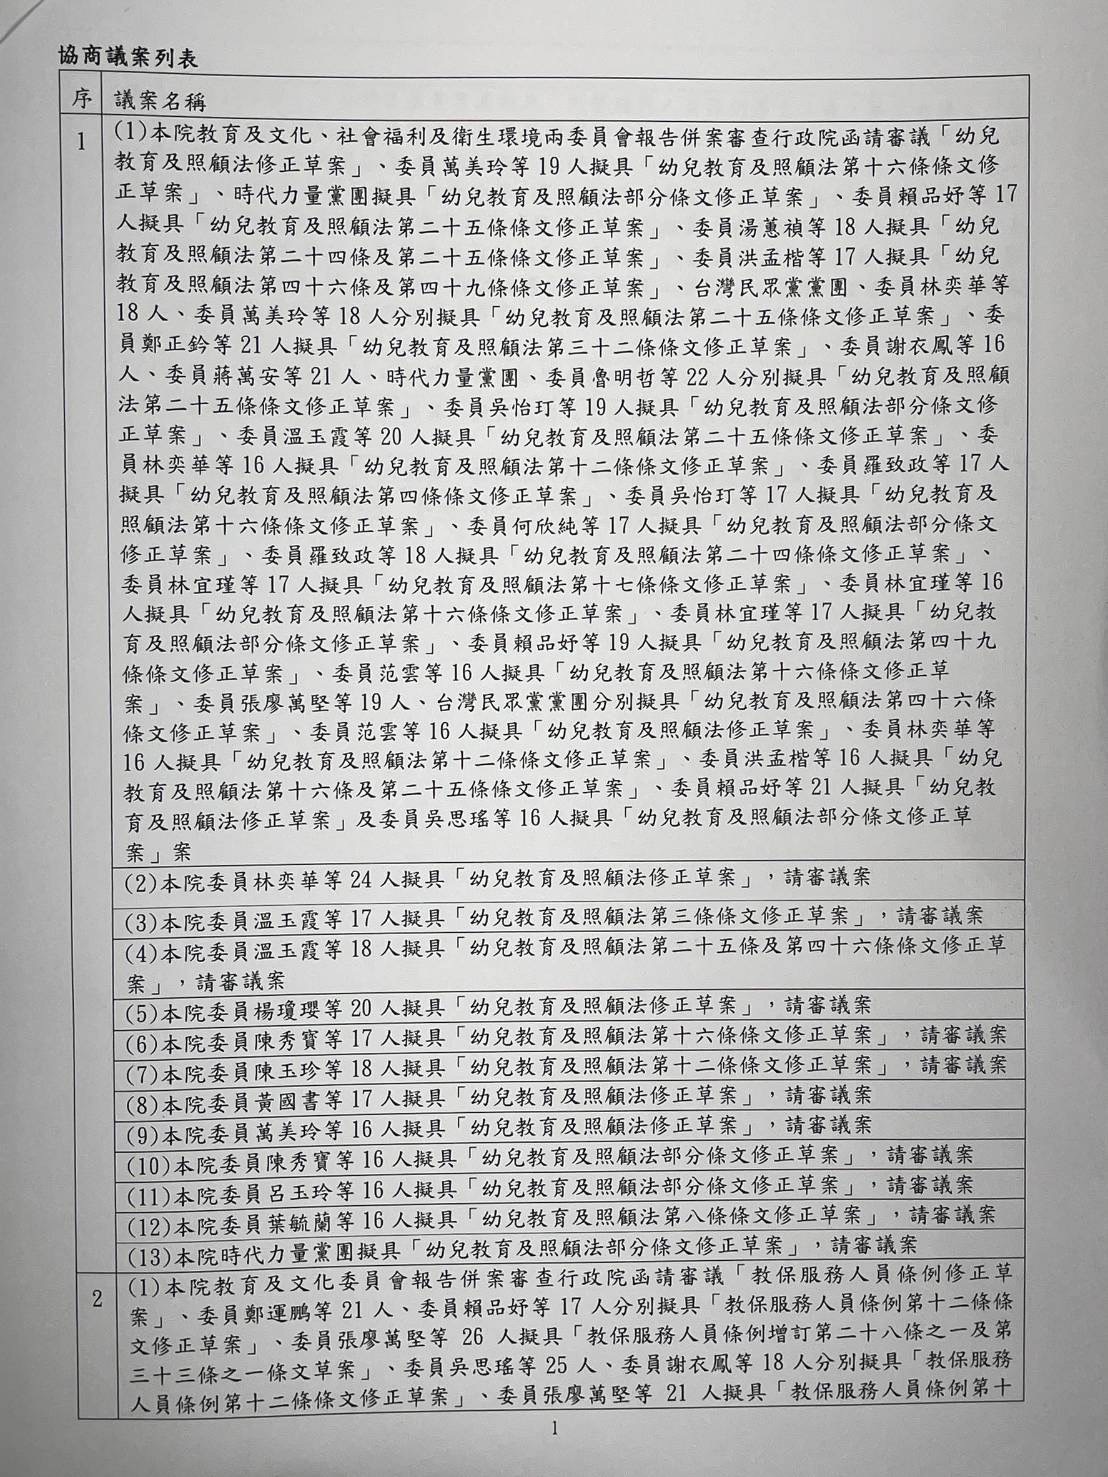 協商議案列表
序 議案名稱
1 (1)本院教育及文化、社會福利及衛生環境兩委員會報告併案審查行政院函請審議「幼兒
教育及照顧法修正草案」、委員萬美玲等 19 人擬具「幼兒教育及照顧法第十六條條文修
正草案」、時代力量黨團擬具「幼兒教育及照顧法部分條文修正草案」、委員賴品妤等 17
人擬具「幼兒教育及照顧法第二十五條條文修正草案」、委員湯蕙禎等 18 人擬具「幼兒
教育及照顧法第二十四條及第二十五條條文修正草案」、委員洪孟楷等 17 人擬具「幼兒
教育及照顧法第四十六條及第四十九條條文修正草案」、台灣民眾黨黨團、委員林奕華等
18 人、委員萬美玲等 18 人分別擬具「幼兒教育及照顧法第二十五條條文修正草案」、委
員鄭正鈐等 21 人擬具「幼兒教育及照顧法第三十二條條文修正草案」、委員謝衣鳳等 16
人、委員蔣萬安等 21 人、時代力量黨團、委員魯明哲等 22 人分別擬具「幼兒教育及照顧
法第二十五條條文修正草案」、委員吳怡玎等 19 人擬具「幼兒教育及照顧法部分條文修
正草案」、委員溫玉霞等 20 人擬具「幼兒教育及照顧法第二十五條條文修正草案」、委
員林奕華等 16 人擬具「幼兒教育及照顧法第十二條條文修正草案」、委員羅致政等 17 人
擬具「幼兒教育及照顧法第四條條文修正草案」、委員吳怡玎等 17 人擬具「幼兒教育及
照顧法第十六條條文修正草案」、委員何欣純等 17 人擬具「幼兒教育及照顧法部分條文
修正草案」、委員羅致政等 18 人擬具「幼兒教育及照顧法第二十四條條文修正草案」、
委員林宜瑾等 17 人擬具「幼兒教育及照顧法第十七條條文修正草案」、委員林宜瑾等 16
人擬具「幼兒教育及照顧法第十六條條文修正草案」、委員林宜瑾等 17 人擬具「幼兒教
育及照顧法部分條文修正草案」、委員賴品妤等 19 人擬具「幼兒教育及照顧法第四十九
條條文修正草案」、委員范雲等 16 人擬具「幼兒教育及照顧法第十六條條文修正草
案」、委員張廖萬堅等 19 人、台灣民眾黨黨團分別擬具「幼兒教育及照顧法第四十六條
條文修正草案」、委員范雲等 16 人擬具「幼兒教育及照顧法修正草案」、委員林奕華等
16 人擬具「幼兒教育及照顧法第十二條條文修正草案」、委員洪孟楷等 16 人擬具「幼兒
教育及照顧法第十六條及第二十五條條文修正草案」、委員賴品妤等 21 人擬具「幼兒教
育及照顧法修正草案」及委員吳思瑤等 16 人擬具「幼兒教育及照顧法部分條文修正草
案」案
(2)本院委員林奕華等 24 人擬具「幼兒教育及照顧法修正草案」，請審議案
(3)本院委員溫玉霞等 17 人擬具「幼兒教育及照顧法第三條條文修正草案」，請審議案
(4)本院委員溫玉霞等 18 人擬具「幼兒教育及照顧法第二十五條及第四十六條條文修正草
案」，請審議案
(5)本院委員楊瓊瓔等 20 人擬具「幼兒教育及照顧法修正草案」，請審議案
(6)本院委員陳秀寳等 17 人擬具「幼兒教育及照顧法第十六條條文修正草案」，請審議案
(7)本院委員陳玉珍等 18 人擬具「幼兒教育及照顧法第十二條條文修正草案」，請審議案
(8)本院委員黃國書等 17 人擬具「幼兒教育及照顧法修正草案」，請審議案
(9)本院委員萬美玲等 16 人擬具「幼兒教育及照顧法修正草案」，請審議案
(10)本院委員陳秀寳等 16 人擬具「幼兒教育及照顧法部分條文修正草案」，請審議案
(11)本院委員呂玉玲等 16 人擬具「幼兒教育及照顧法部分條文修正草案」，請審議案
(12)本院委員葉毓蘭等 16 人擬具「幼兒教育及照顧法第八條條文修正草案」，請審議案
(13)本院時代力量黨團擬具「幼兒教育及照顧法部分條文修正草案」，請審議案
2 (1)本院教育及文化委員會報告併案審查行政院函請審議「教保服務人員條例修正草
案」、委員鄭運鵬等 21 人、委員賴品妤等 17 人分別擬具「教保服務人員條例第十二條條
文修正草案」、委員張廖萬堅等 26 人擬具「教保服務人員條例增訂第二十八條之一及第
三十三條之一條文草案」、委員吳思瑤等 25 人、委員謝衣鳳等 18 人分別擬具「教保服務
人員條例第十二條條文修正草案」、委員張廖萬堅等 21 人擬具「教保服務人員條例第十
1